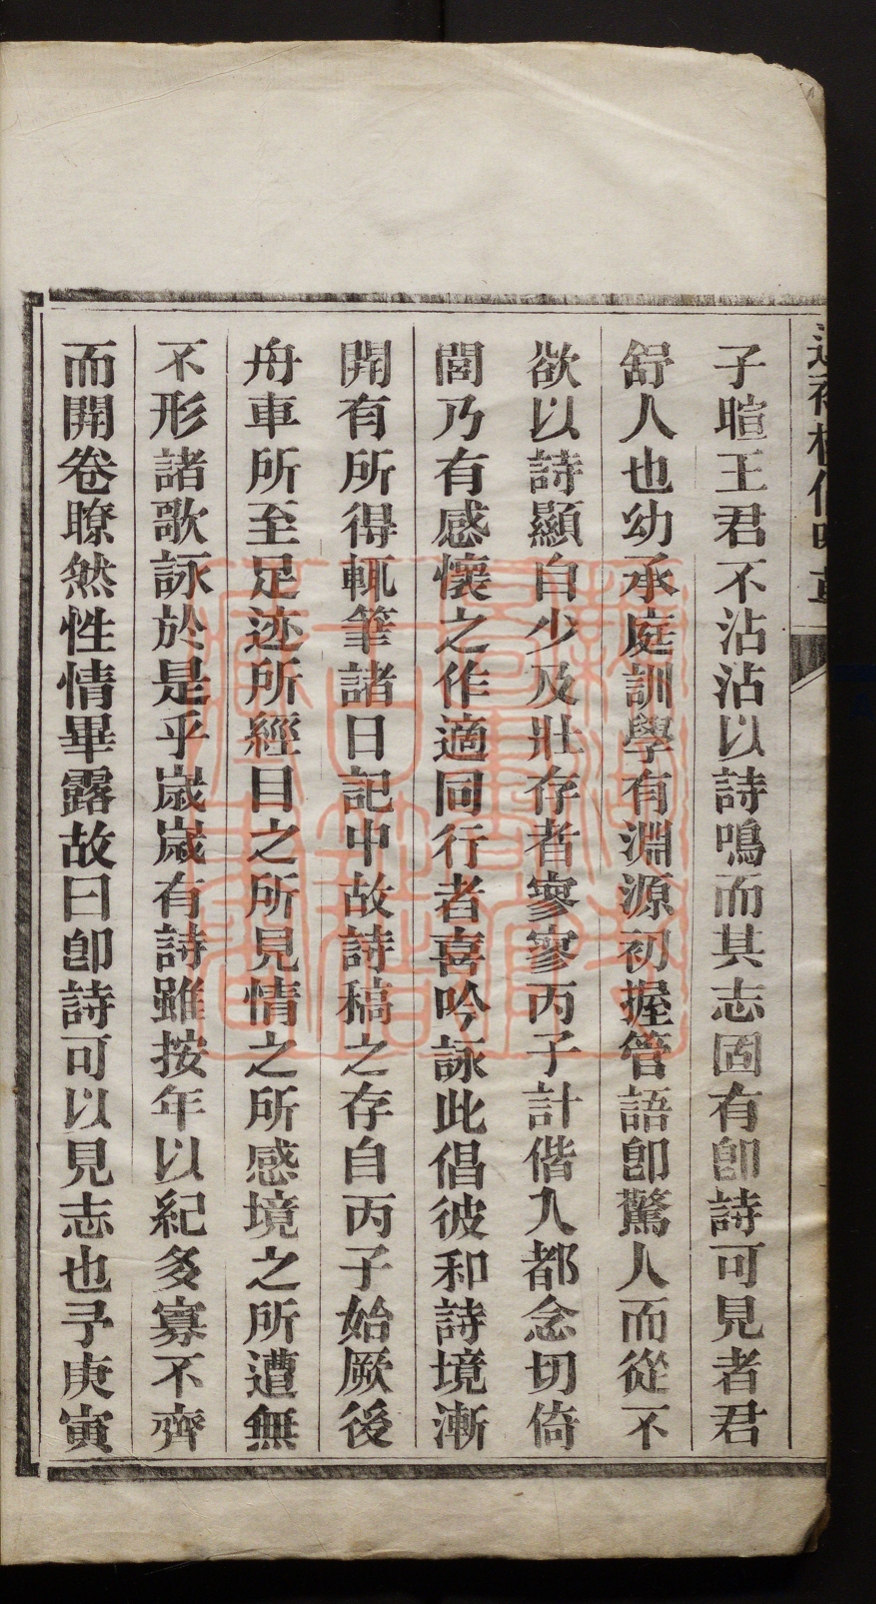 子暄王君不沾沾以詩鳴而其志固有卽詩可見者君
舒人也幼承庭訓學有淵源初握管語卽驚人而從不
欲以詩顯自少及壯存者寥寥丙子計偕入都念切倚
閭乃有感懷之作適同行者喜吟詠此倡彼和詩境漸
開有所得輒筆諸日記中故詩稿之存自丙子始厥後
舟車所至足迹所經目之所見情之所感境之所遭無
不形諸歌詠於是乎歲歲有詩雖按年以紀多寡不齊
而開卷瞭然性情畢露故曰卽詩可以見志也予庚寅